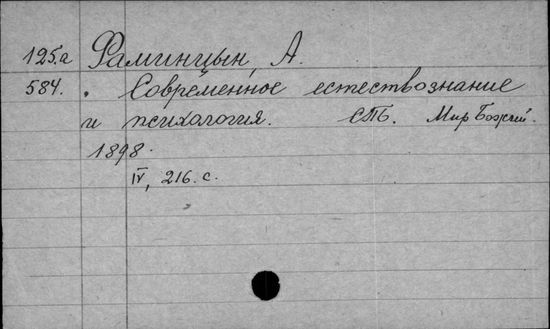 125.a Фаминцын, А.
584. . Современное естествознание
и психология. СПБ. Мир Божий.
1898.
IV, 216. с.